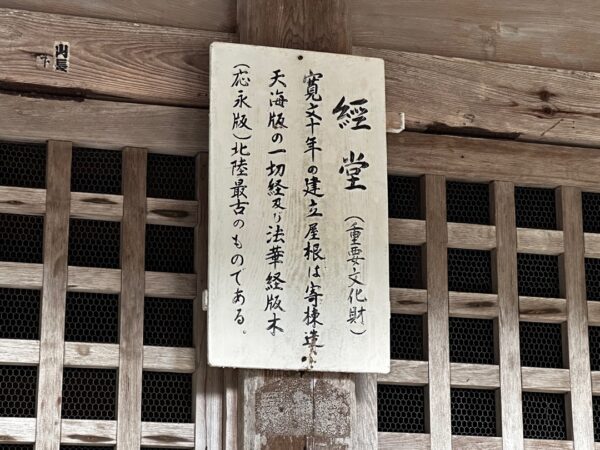 經堂(重要文化財)
寛文十年の建立屋根は寄棟造
天海版の一切経及び法華経版木
(応永版)北陸最古のものである。